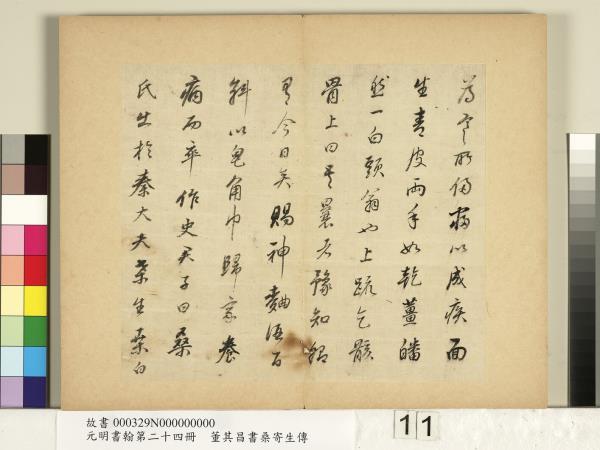 為寒所以成疾面
生青皮兩手如乾薑皤
然一白頭翁也上疏乞骸
骨上曰吾曩者豫知卿
有今日矣賜神麯酒百
斛以皂角巾歸家養
病而卒作史君子曰桑
氏出於秦大夫桑生桑白
故書 000329N000000000
元明書翰第二十四冊 董其昌書桑寄生傳
11